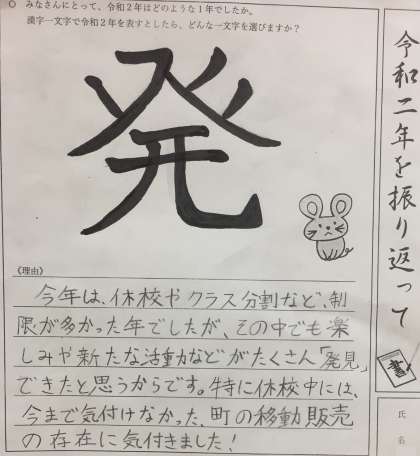 ○ みなさんにとって、令和2年はどのような1年でしたか。
漢字一文字で令和2年を表すとしたら、どんな一文字を選びますか?
令和二年を振り返って
発
《理由》
今年は、休校やクラス分割など、制
限が多かった年でしたが、その中でも楽
しみや新たな活動などがたくさん「発見」
できたと思うからです。特に休校中には、
今まで気付けなかった、町の移動販売
の存在に気付きました!
書
氏
名